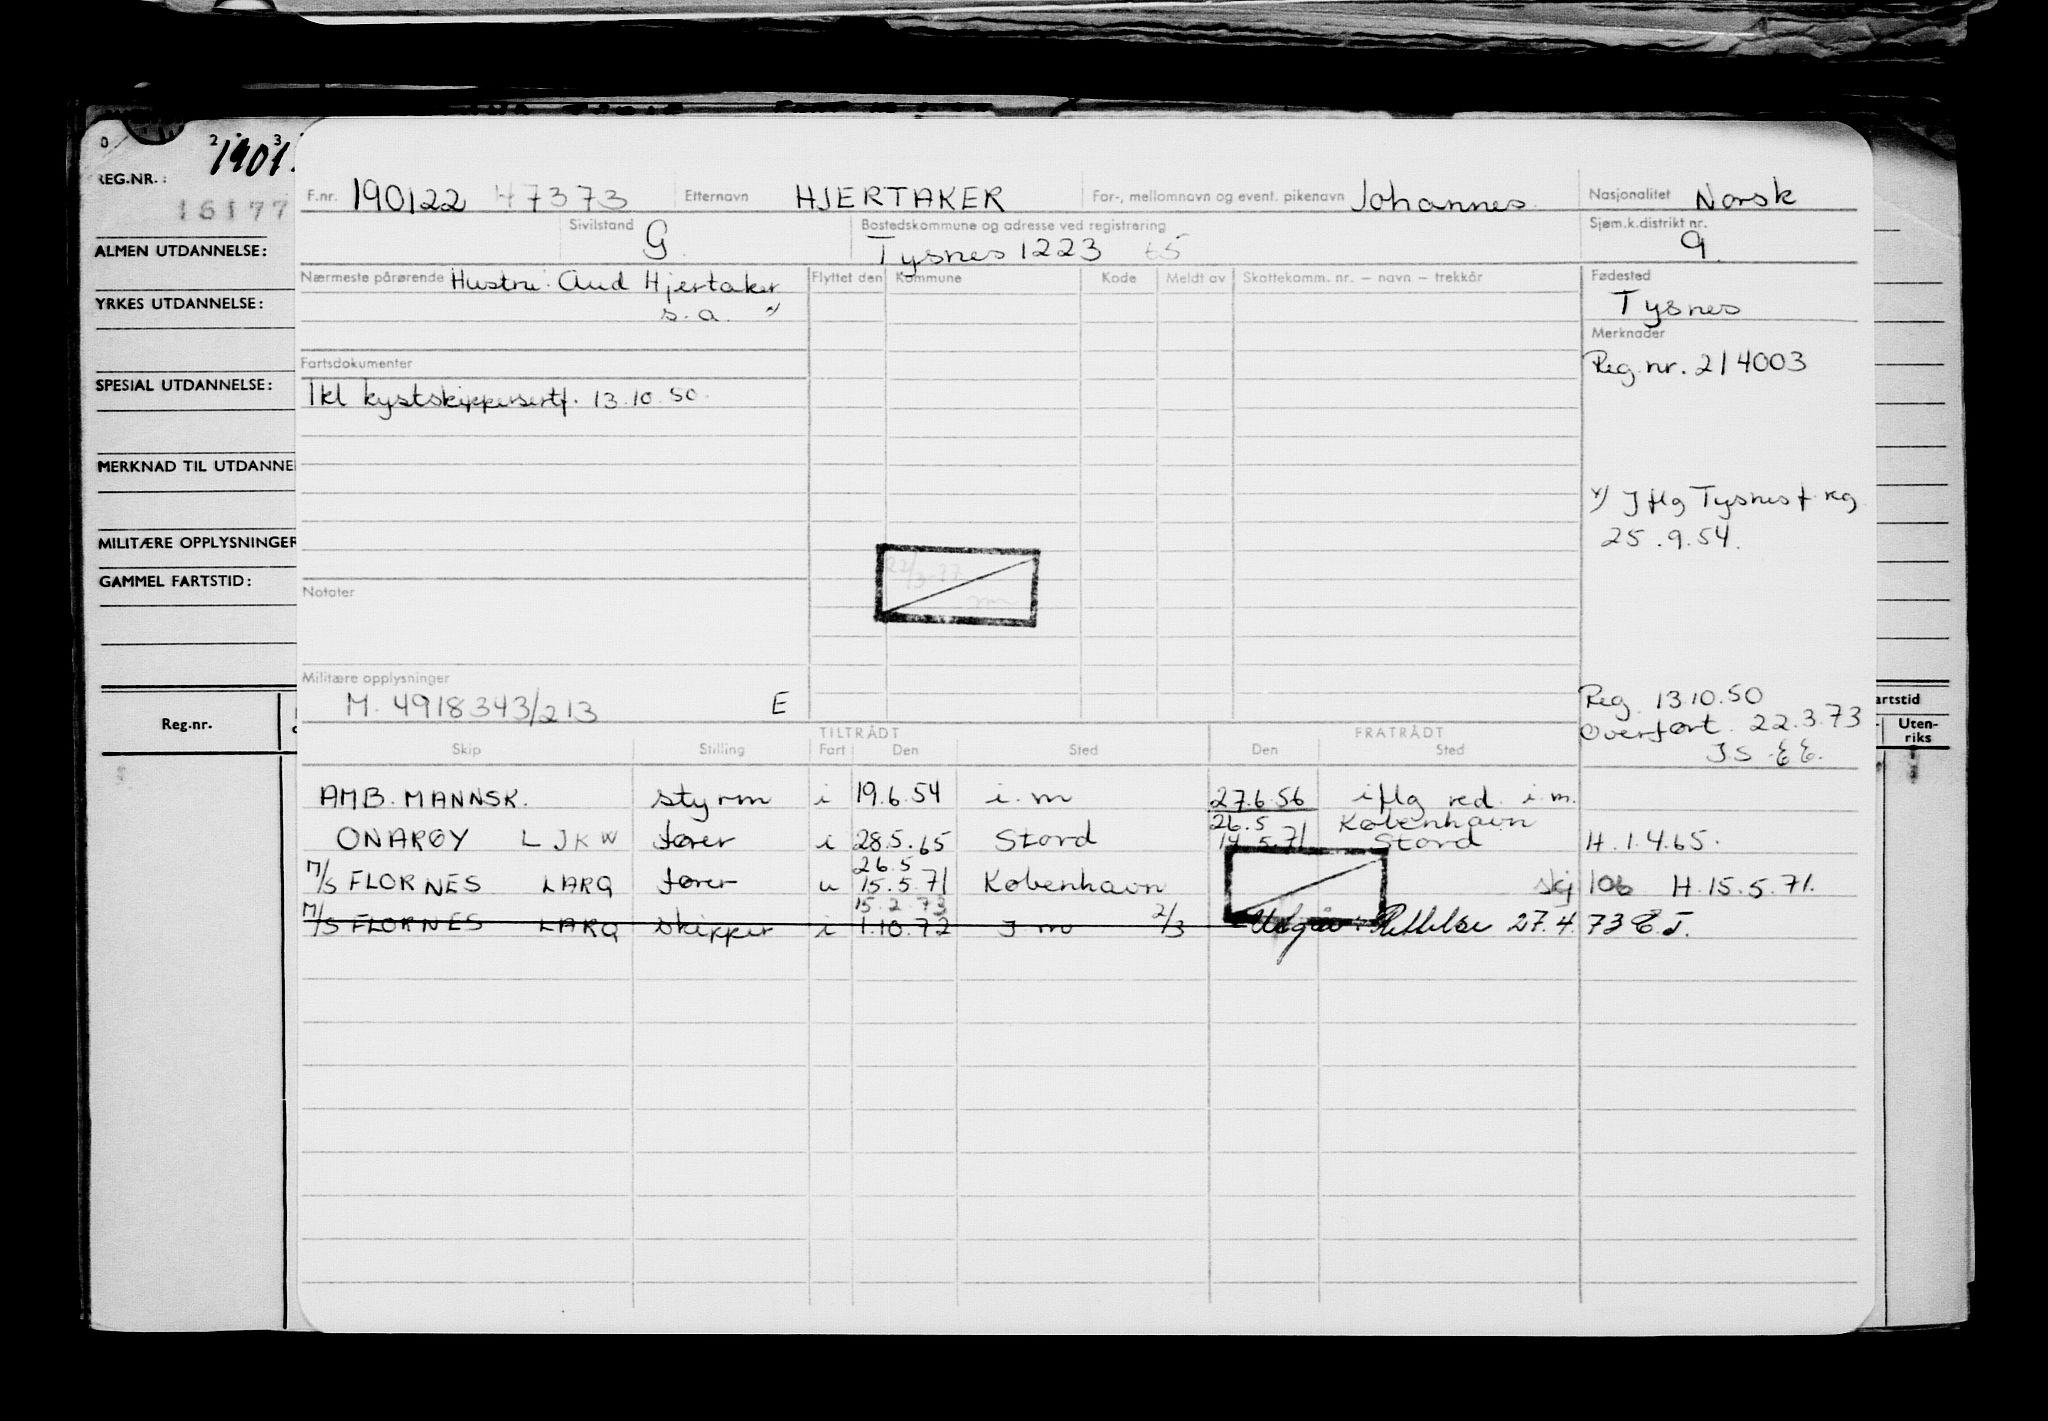 1901
REG.NR.:
16177
ALMEN UTDANNELSE:
YRKES UTDANNELSE:
SPESIAL UTDANNELSE:
MERKNAD TIL UTDANNE
MILITÆRE OPPLYSNINGER
GAMMEL FARTSTID:
Reg.nr.
F.nr. 190122 47373 Etternavn HJERTAKER For-, mellomnavn og event. pikenavn Johannes Nasjonalitet Norsk
Sivilstand G Bostedskommune og adresse ved registrering Tysnes 1223 65 Sjøm.k.distrikt nr. 9.
Nærmeste pårørende Hustru: Aud Hjertaker
s.a. x)
Flyttet den Kommune Kode Meldt av Skattekomm. nr. – navn – trekkår
Fødested
Tysnes
Merknader
Reg.nr. 214003
Fartsdokumenter
1kl kystskippersertf. 13.10.50.
x) Iflg Tysnes f.reg
25.9.54.
22/3-77
Notater
Militære opplysninger
M. 4918343/213 E
Reg. 13.10.50
Overført. 22.3.73
IS. EE.
artstid
Uten-
riks
TILTRÅDT FRATRÅDT
Skip Stilling Fart Den Sted Den Sted
AMB. MANNSK. styrm i 19.6.54 i.m 27.6.56 iflg red. i.m.
26.5 København
ONARØY LJKW fører i 28.5.65 Stord 14.5.71 Stord H.1.4.65.
26.5
M/S FLORNES LARQ fører u 15.5.71 København skj 106 H.15.5.71.
15.2.73
M/S FLORNES LARQ skipper i 1.10.72 I m 2/3 Utgår. Rettelse 27.4.73 E.J.